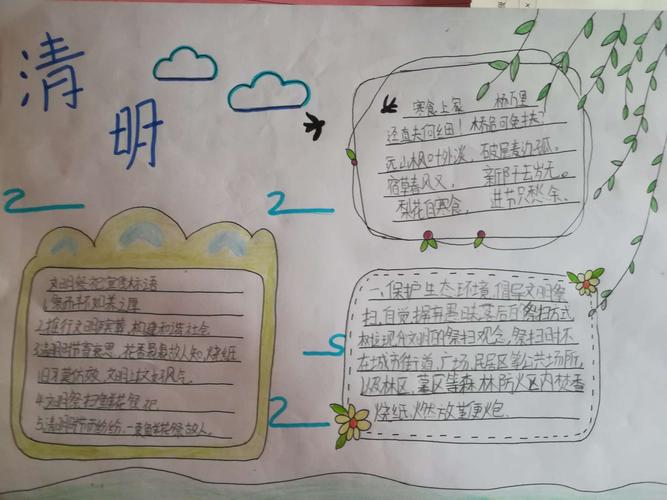 清明
寒食上冢 杨万里
迳直夫何细！桥危可免扶？
远山枫叶外淡，破屋麦边孤。
宿草春风又，新阡去岁无。
梨花自寒食，进节只愁余。
文明祭祀宣传标语
2.推行文明殡葬，构建和谐社会
3.清明时节寄哀思，花香易息故人知，烧纸
旧习莫仿效，文明上文好风气。
4.文明祭扫鲜花祭祀
5.清明时节雨纷纷，一束鲜花祭故人。
一、保护生态环境，倡导文明祭
扫，自觉摒弃愚昧落后祭扫方式
文明的祭扫观念，祭扫时不
在城市街道、广场、民居区等公共场所，
以及林区、墓区等森林防火区内焚香
烧纸、燃放鞭炮.